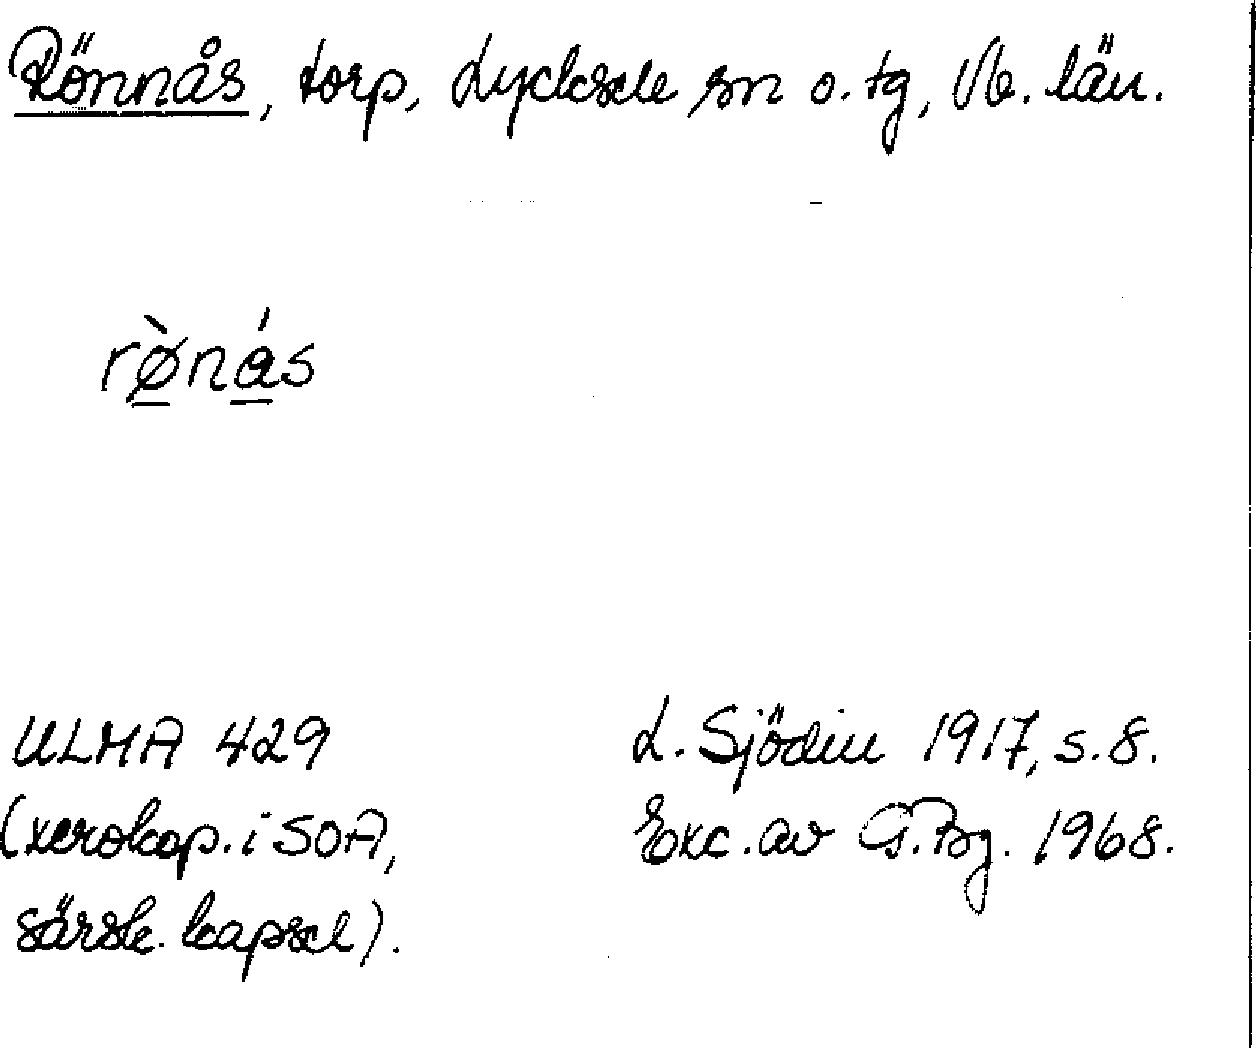 Rönnås, torp, Lycksele sn o. tg, Vb. län.
rø̀nás
ULMA 429
(xerokop. i SOA,
särsk. kapsel).
L. Sjödin 1917, s. 8.
Exc. av G. Bg. 1968.